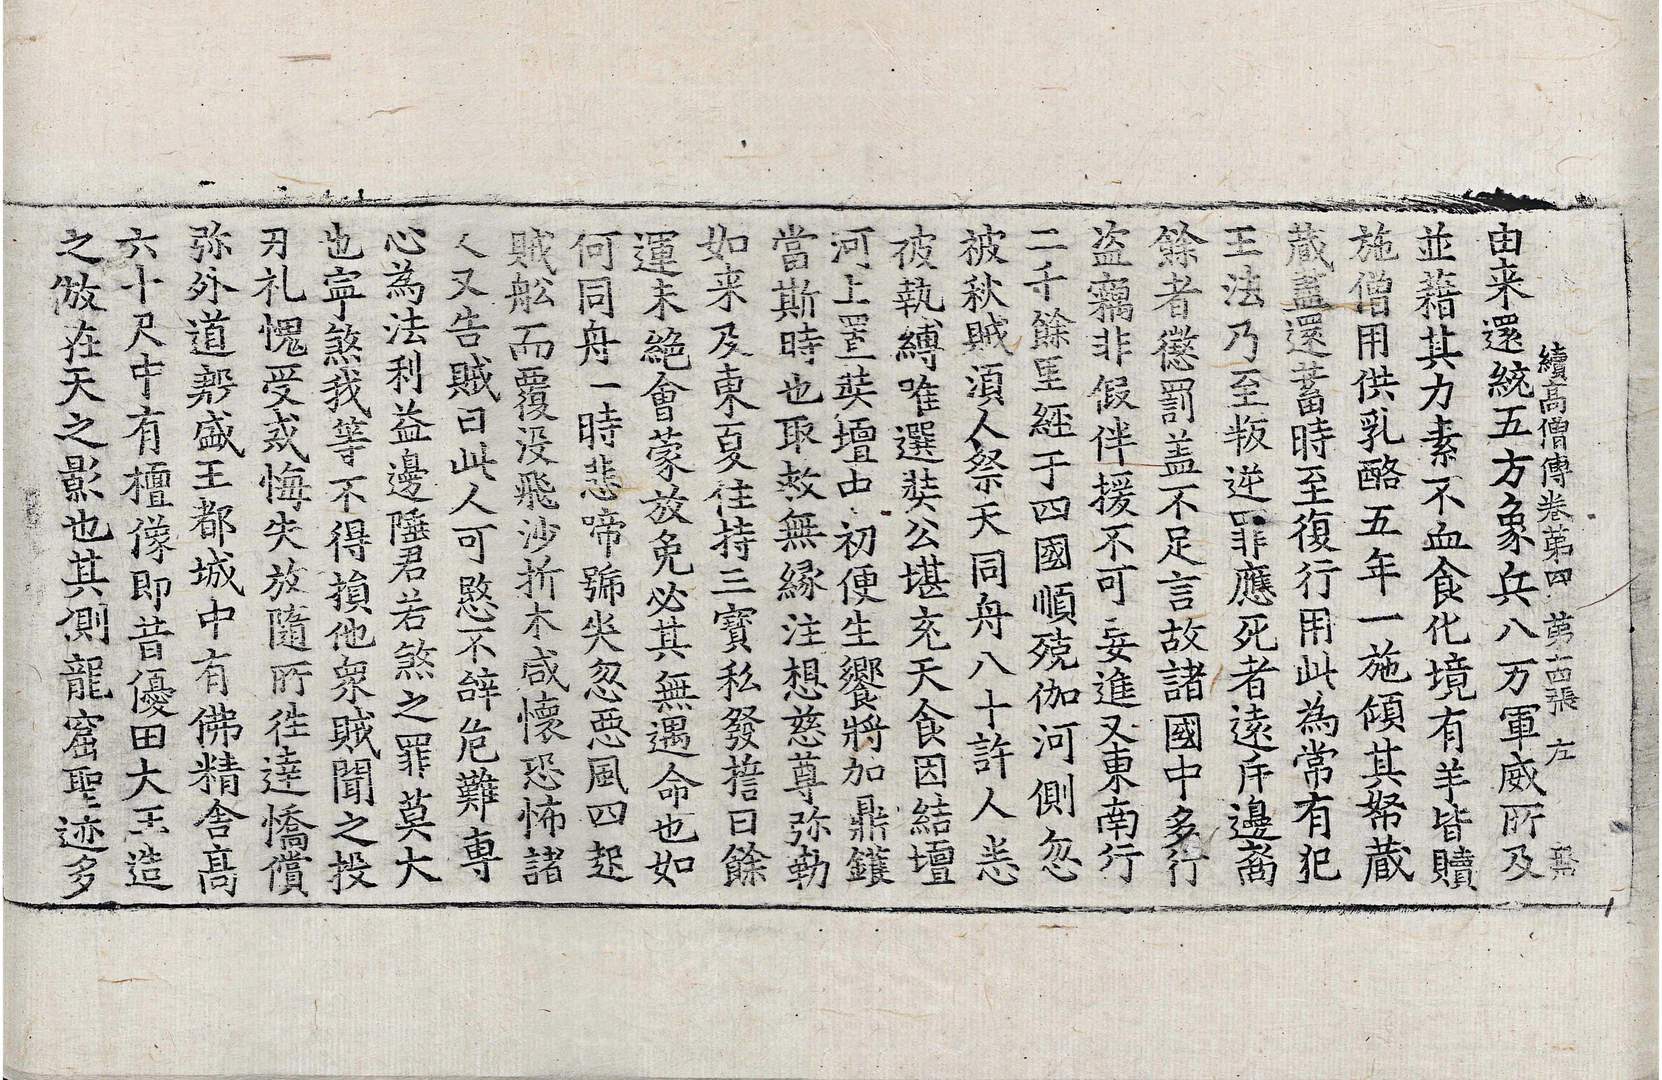 續高僧傳卷第四 第十四張 左
由来還統五方象兵八万軍威所及
並藉其力素不血食化境有羊皆贖
施僧用供乳酪五年一施傾其帑蔵
蔵盡還蓄時至復行用此為常有犯
王法乃至叛逆罪應死者遠斥邊裔
餘者懲罰盖不足言故諸國中多行
盗竊非假伴援不可妄進又東南行
二千餘里經于四國順殑伽河側忽
被秋賊湏人祭天同舟八十許人悉
被執縛唯選奘公堪充天食因結壇
河上置奘壇中初便生饗將加鼎鑊
當斯時也取救無緣注想慈尊弥勒
如来及東夏住持三寶私發誓曰餘
運未絶會蒙放免必其無遇命也如
何同舟一時悲啼號哭忽惡風四起
賊舩而覆没飛沙折木咸懷恐怖諸
人又告賊曰此人可愍不辞危難専
心為法利益邊陲君若煞之罪莫大
也寧煞我等不得損他衆賊聞之投
刃礼愧受戒悔失放隨所往達憍償
弥外道郣盛王都城中有佛精舎髙
六十尺中有檀像即昔優田大王造
之倣在天之影也其側龍窟聖迹多